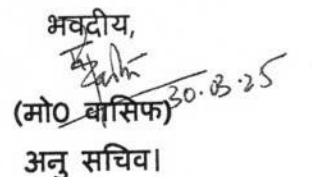 भवदीय,
30.03.25
(मो0 वासिफ)
अनु सचिव।